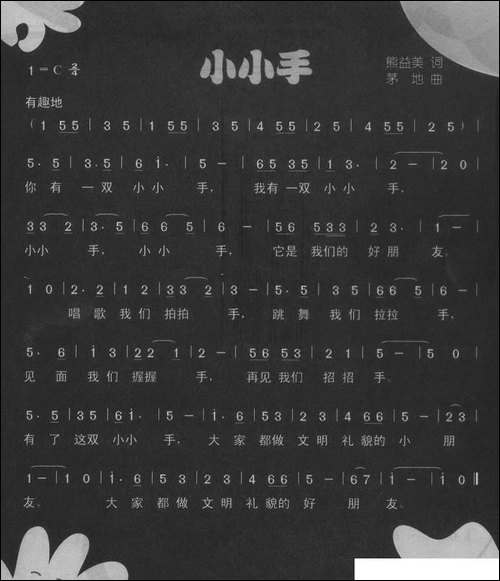 小小手
熊益美 词
1=C 2/4
茅 地 曲
有趣地
(1 55 | 3 5 | 1 55 | 3 5 | 4 55 | 2 5 | 4 55 | 2 5) |
5· 5 | 3·5 | 6 1· | 5 - | 65 35 | 1 3· | 2 - | 2 0 |
你 有 一 双 小 小 手, 我有 一 双 小 小 手,
33 2 | 3· 5 | 66 5 | 6 - | 56 533 | 2 3· | 1 - |
小小 手, 小小 手, 它是 我们的 好朋 友。
1 0 | 2· 2 | 1 2 | 33 2 | 3 - | 5· 5 | 3 5 | 66 5 | 6 - |
唱 歌 我 们 拍拍 手, 跳 舞 我 们 拉拉 手,
5· 6 | 1 3 | 22 1 | 2 - | 56 53 | 2 1 | 5 - | 5 0 |
见 面 我 们 握握 手, 再见 我们 招 招 手。
5· 5 | 35 | 6 1· | 5 - | 1· 6 | 53 | 2 3 | 4 66 | 5 - | 2 3 |
有 了 这双 小小 手, 大 家 都做 文明 礼 貌的 小 朋
1 - | 1 0 | 1· 6 | 5 3 | 2 3 | 4 66 | 5 - | 6 7 | 1 - | 1 0 ‖
友。 大 家 都做 文明 礼 貌的 好 朋 友。